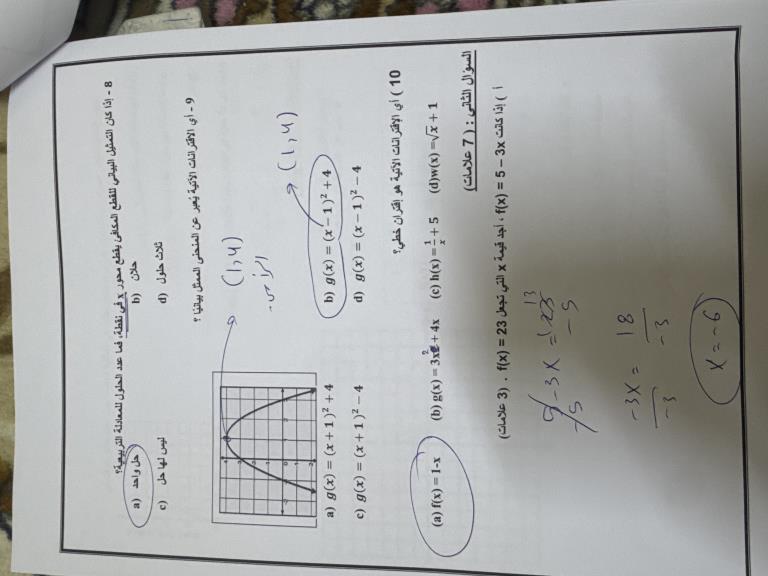 8 - إذا كان التمثيل البياني للقطع المكافئ يقطع محور x في نقطة، فما عدد الحلول للمعادلة التربيعية؟
a) حل واحد b) حلان
c) ليس لها حل d) ثلاث حلول
9 - أي الاقترانات الآتية يعبر عن المنحنى الممثل بيانيا ؟
(1,4)
الرأس
a) g(x) = (x + 1)² + 4 b) g(x) = (x − 1)² + 4 (1,4)
c) g(x) = (x + 1)² − 4 d) g(x) = (x − 1)² − 4
10 ) أي الاقترانات الآتية هو إقتران خطي؟
(a) f(x) = 1-x (b) g(x) = 3x² + 4x (c) h(x) = 1/x + 5 (d)w(x) =√x + 1
السؤال الثاني : ( 7 علامات)
أ ) إذا كانت f(x) = 5 − 3x ، أجد قيمة x التي تجعل f(x) = 23 . (3 علامات)
-3X =
-5 -5
-3X = 18
-3 -3
X = -6